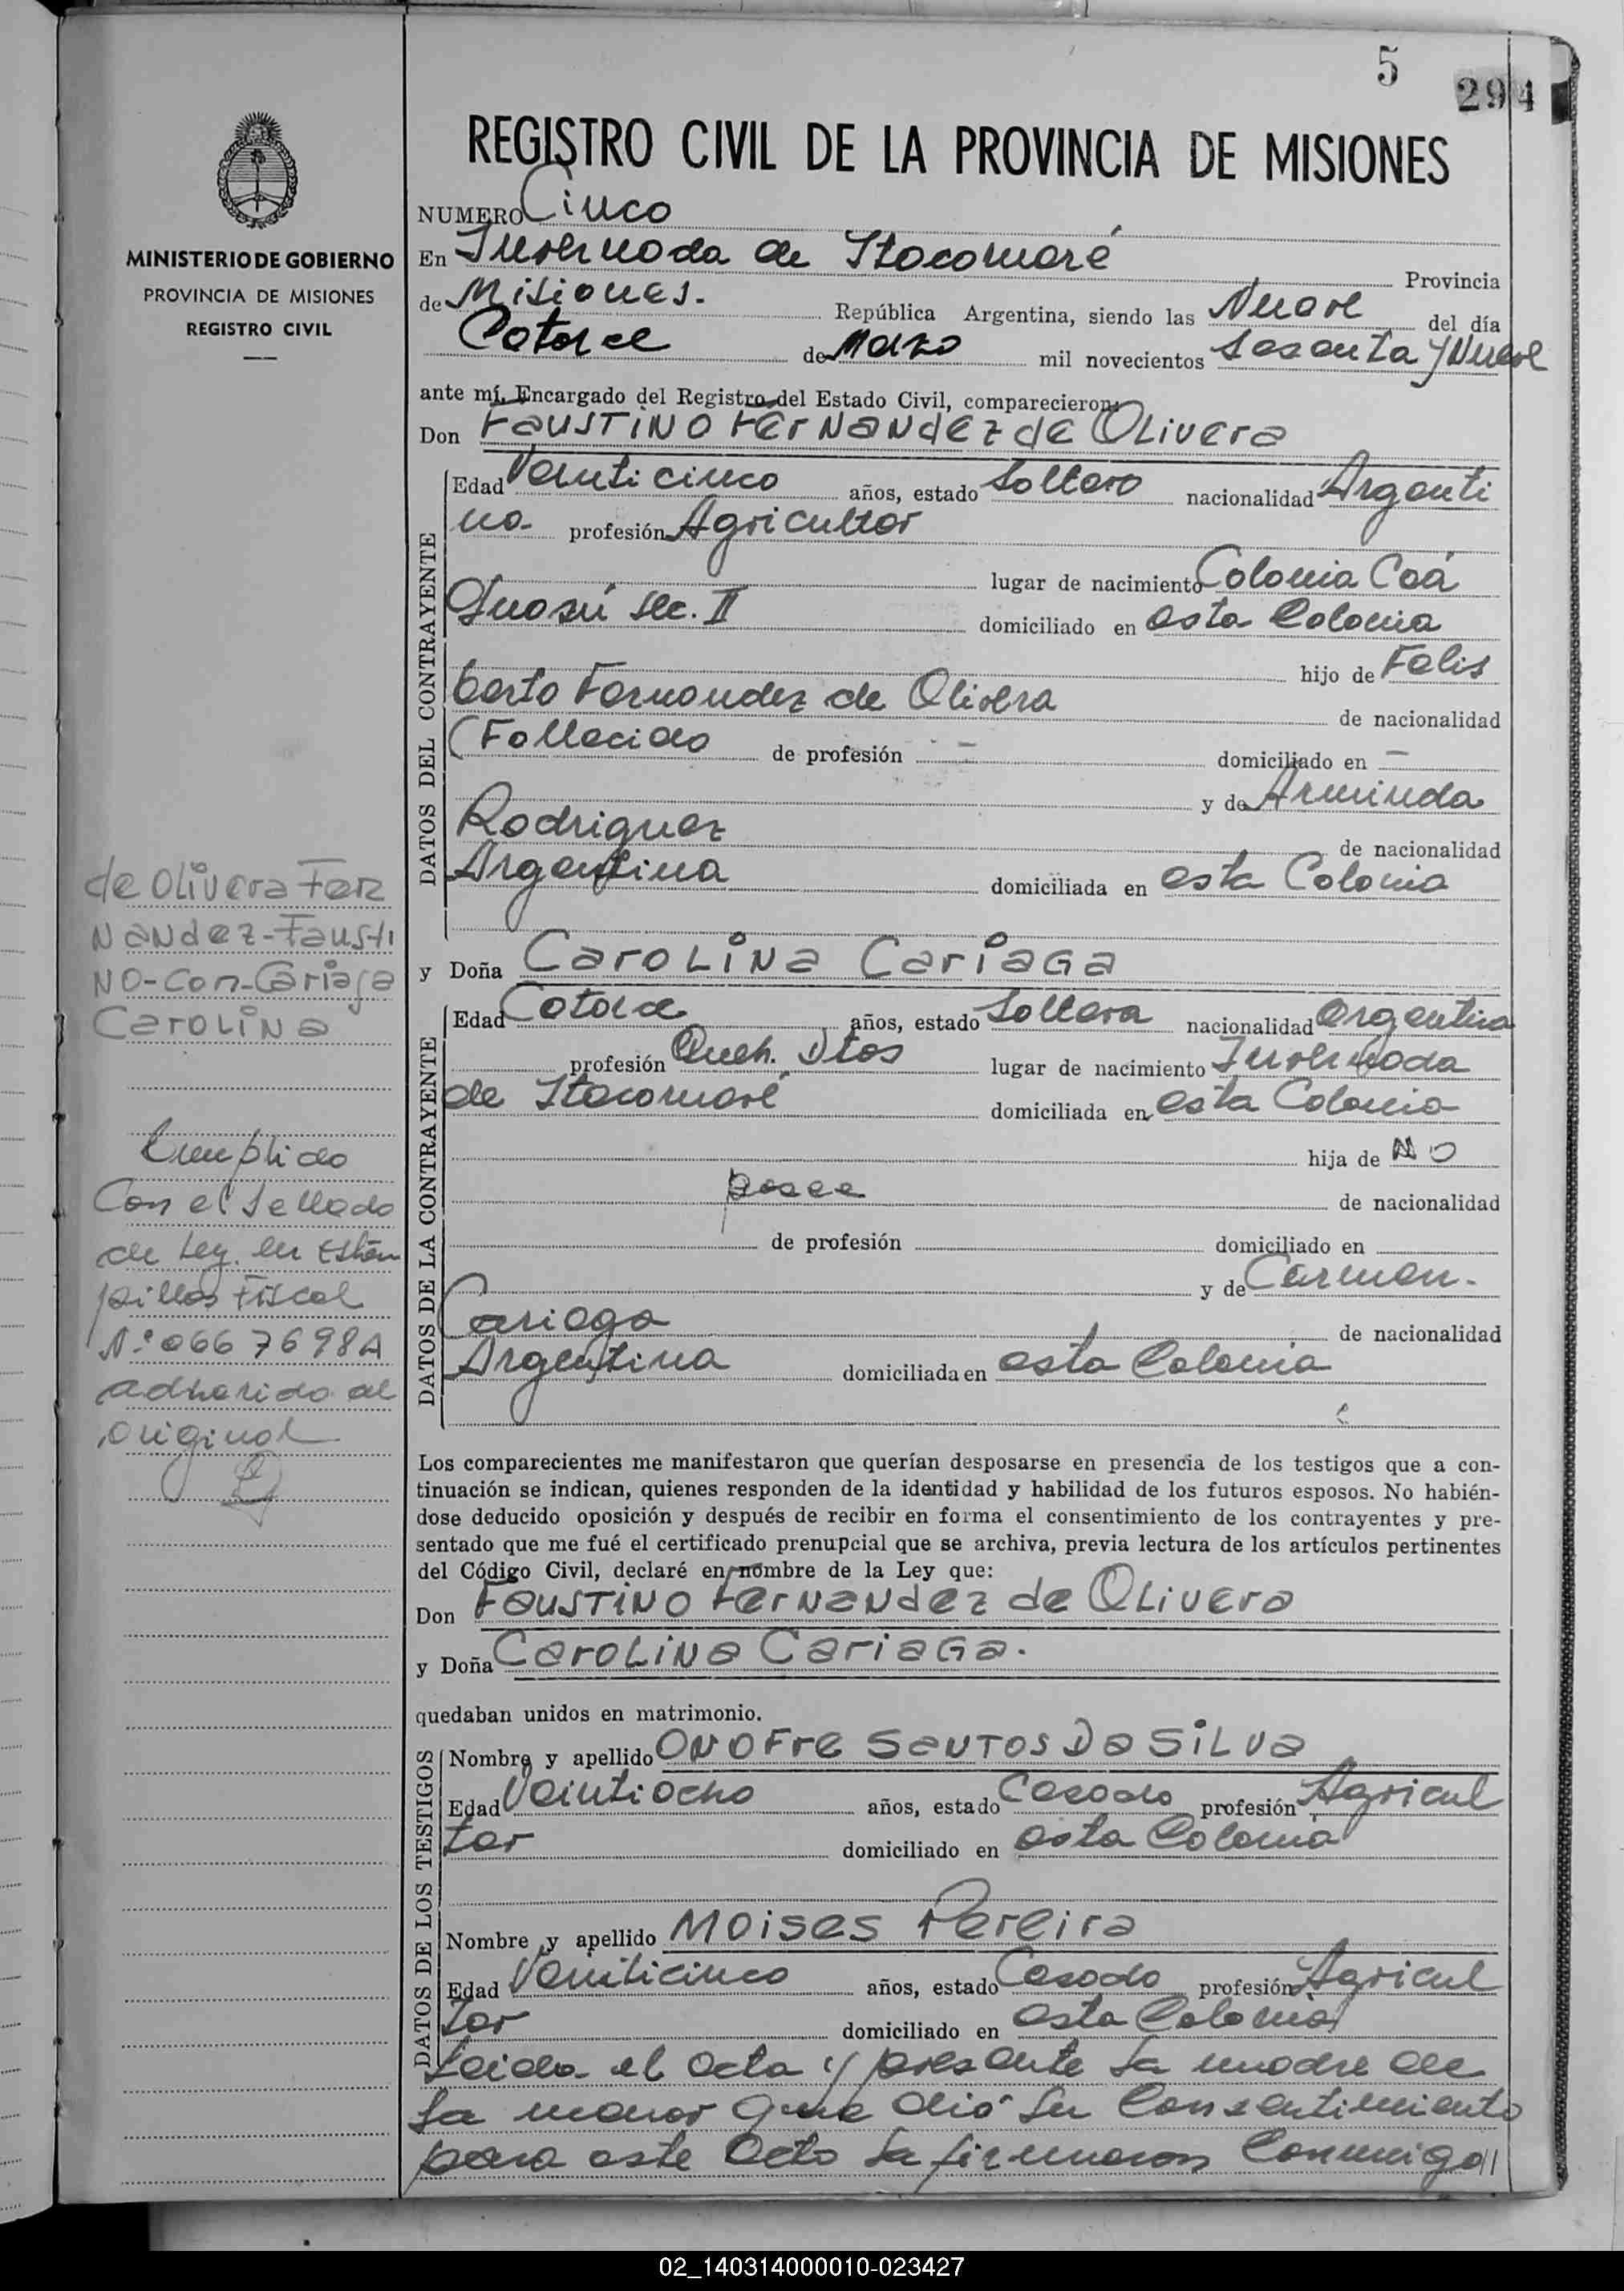 5
294
REGISTRO CIVIL DE LA PROVINCIA DE MISIONES
MINISTERIO DE GOBIERNO
PROVINCIA DE MISIONES
REGISTRO CIVIL
NUMERO Cinco
En Invernada de Itacoruaré Provincia
de Misiones. República Argentina, siendo las Nueve del día
Catorce de Marzo mil novecientos Sesenta y Nueve
ante mí, Encargado del Registro del Estado Civil, comparecieron:
Don Faustino Fernandez de Olivera
DATOS DEL CONTRAYENTE
Edad Veinticinco años, estado Soltero nacionalidad Argenti
no- profesión Agricultor
lugar de nacimiento Colonia Caá
Guasú Sec. II domiciliado en esta Colonia
hijo de Felis
berto Fernandez de Olivera de nacionalidad
(Fallecido de profesión - domiciliado en -
y de Arminda
Rodriguez de nacionalidad
Argentina domiciliada en esta Colonia
y Doña Carolina Cariaga
DATOS DE LA CONTRAYENTE
Edad Catorce años, estado Soltera nacionalidad Argentina
profesión Queh. Dtos lugar de nacimiento Invernada
de Itacoruaré domiciliada en esta Colonia
hija de No
posee de nacionalidad
de profesión domiciliado en
y de Carmen.
Cariaga de nacionalidad
Argentina domiciliada en esta Colonia
Los comparecientes me manifestaron que querían desposarse en presencia de los testigos que a con-
tinuación se indican, quienes responden de la identidad y habilidad de los futuros esposos. No habién-
dose deducido oposición y después de recibir en forma el consentimiento de los contrayentes y pre-
sentado que me fué el certificado prenupcial que se archiva, previa lectura de los artículos pertinentes
del Código Civil, declaré en nombre de la Ley que:
Don Faustino Fernandez de Olivera
y Doña Carolina Cariaga.
quedaban unidos en matrimonio.
DATOS DE LOS TESTIGOS
Nombre y apellido Onofre Santos Da Silva
Edad Veintiocho años, estado Casado profesión Agricul
tor domiciliado en esta Colonia
Nombre y apellido Moises Pereira
Edad Veinticinco años, estado Casado profesión Agricul
tor domiciliado en esta Colonia
Leida el acta y presente la madre de
la menor que dió su Consentimiento
para este Acto la firmaron Conmigo//
de Olivera Fer
nandez-Fausti
no-con-Cariaga
Carolina
Cumplido
Con el Sellado
de Ley. en Estam
pillas Fiscal
N:º 0667698A
adherido al
original
02_140314000010-023427